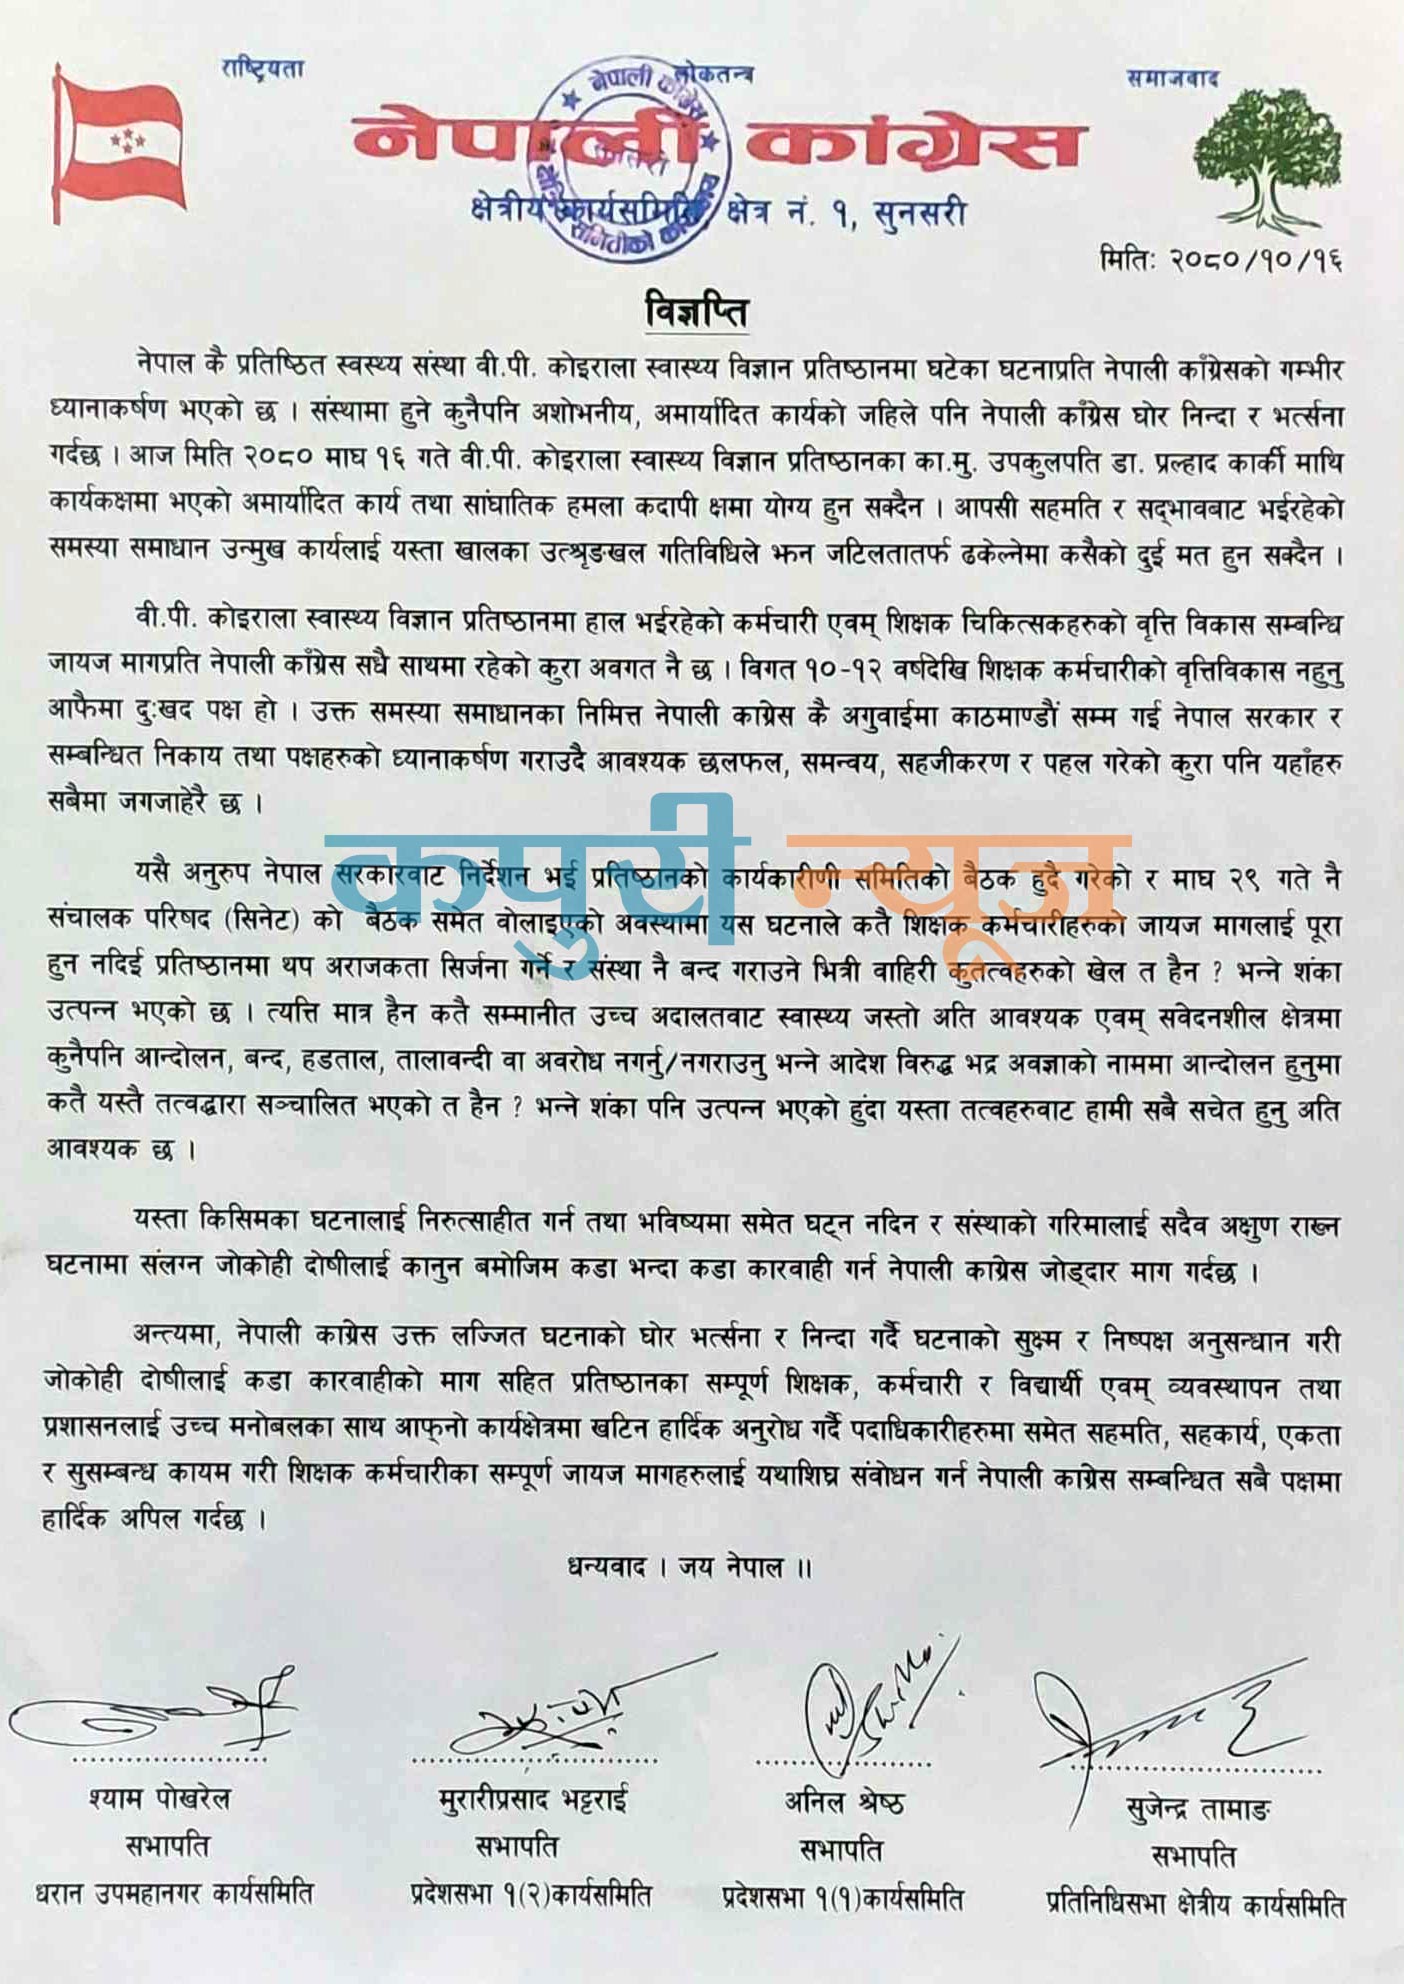 राष्ट्रियता लोकतन्त्र समाजवाद
नेपाली कांग्रेस
क्षेत्रीय कार्यसमिति, क्षेत्र नं. १, सुनसरी
मितिः २०८०/१०/१६
विज्ञप्ति
नेपाल कै प्रतिष्ठित स्वस्थ्य संस्था वी.पी. कोइराला स्वास्थ्य विज्ञान प्रतिष्ठानमा घटेका घटनाप्रति नेपाली काँग्रेसको गम्भीर
ध्यानाकर्षण भएको छ । संस्थामा हुने कुनैपनि अशोभनीय, अमार्यादित कार्यको जहिले पनि नेपाली काँग्रेस घोर निन्दा र भर्त्सना
गर्दछ । आज मिति २०८० माघ १६ गते वी.पी. कोइराला स्वास्थ्य विज्ञान प्रतिष्ठानका का.मु. उपकुलपति डा. प्रल्हाद कार्की माथि
कार्यकक्षमा भएको अमार्यादित कार्य तथा सांघातिक हमला कदापी क्षमा योग्य हुन सक्दैन । आपसी सहमति र सद्‌भावबाट भईरहेको
समस्या समाधान उन्मुख कार्यलाई यस्ता खालका उत्श्रृङखल गतिविधिले झन जटिलतातर्फ ढकेल्नेमा कसैको दुई मत हुन सक्दैन ।
वी.पी. कोइराला स्वास्थ्य विज्ञान प्रतिष्ठानमा हाल भईरहेको कर्मचारी एवम् शिक्षक चिकित्सकहरुको वृत्ति विकास सम्बन्धि
जायज मागप्रति नेपाली काँग्रेस सधै साथमा रहेको कुरा अवगत नै छ । विगत १०-१२ वर्षदेखि शिक्षक कर्मचारीको वृत्तिविकास नहुनु
आफैमा दुःखद पक्ष हो । उक्त समस्या समाधानका निमित्त नेपाली काग्रेस कै अगुवाईमा काठमाण्डौं सम्म गई नेपाल सरकार र
सम्बन्धित निकाय तथा पक्षहरुको ध्यानाकर्षण गराउदै आवश्यक छलफल, समन्वय, सहजीकरण र पहल गरेको कुरा पनि यहाँहरु
सबैमा जगजाहेरै छ ।
कपुरी न्यूज
यसै अनुरुप नेपाल सरकारवाट निर्देशन भई प्रतिष्ठानको कार्यकारीणी समितिको बैठक हुदै गरेको र माघ २९ गते नै
संचालक परिषद (सिनेट) को बैठक समेत वोलाइएको अवस्थामा यस घटनाले कतै शिक्षक कर्मचारीहरुको जायज मागलाई पूरा
हुन नदिई प्रतिष्ठानमा थप अराजकता सिर्जना गर्ने र संस्था नै बन्द गराउने भित्री वाहिरी कुतत्वहरुको खेल त हैन ? भन्ने शंका
उत्पन्न भएको छ । त्यत्ति मात्र हैन कतै सम्मानीत उच्च अदालतवाट स्वास्थ्य जस्तो अति आवश्यक एवम् सवेदनशील क्षेत्रमा
कुनैपनि आन्दोलन, बन्द, हडताल, तालावन्दी वा अवरोध नगर्नु/नगराउनु भन्ने आदेश विरुद्ध भद्र अवज्ञाको नाममा आन्दोलन हुनुमा
कतै यस्तै तत्वद्धारा सञ्चालित भएको त हैन ? भन्ने शंका पनि उत्पन्न भएको हुंदा यस्ता तत्वहरुवाट हामी सबै सचेत हुनु अति
आवश्यक छ ।
यस्ता किसिमका घटनालाई निरुत्साहीत गर्न तथा भविष्यमा समेत घट्न नदिन र संस्थाको गरिमालाई सदैव अक्षुण राख्न
घटनामा संलग्न जोकोही दोषीलाई कानुन बमोजिम कडा भन्दा कडा कारवाही गर्न नेपाली काग्रेस जोड्दार माग गर्दछ ।
अन्त्यमा, नेपाली काग्रेस उक्त लज्जित घटनाको घोर भर्त्सना र निन्दा गर्दै घटनाको सुक्ष्म र निष्पक्ष अनुसन्धान गरी
जोकोही दोषीलाई कडा कारवाहीको माग सहित प्रतिष्ठानका सम्पूर्ण शिक्षक, कर्मचारी र विद्यार्थी एवम् व्यवस्थापन तथा
प्रशासनलाई उच्च मनोबलका साथ आफ्‌नो कार्यक्षेत्रमा खटिन हार्दिक अनुरोध गर्दै पदाधिकारीहरुमा समेत सहमति, सहकार्य, एकता
र सुसम्बन्ध कायम गरी शिक्षक कर्मचारीका सम्पूर्ण जायज मागहरुलाई यथाशिघ्र संवोधन गर्न नेपाली काग्रेस सम्बन्धित सबै पक्षमा
हार्दिक अपिल गर्दछ ।
धन्यवाद । जय नेपाल ॥
श्याम पोखरेल मुरारीप्रसाद भट्टराई अनिल श्रेष्ठ सुजेन्द्र तामाङ
सभापति सभापति सभापति सभापति
धरान उपमहानगर कार्यसमिति प्रदेशसभा १(२)कार्यसमिति प्रदेशसभा १(१)कार्यसमिति प्रतिनिधिसभा क्षेत्रीय कार्यसमिति